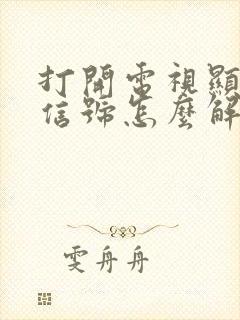 打開電視顯
信號怎麼解
雯舟舟